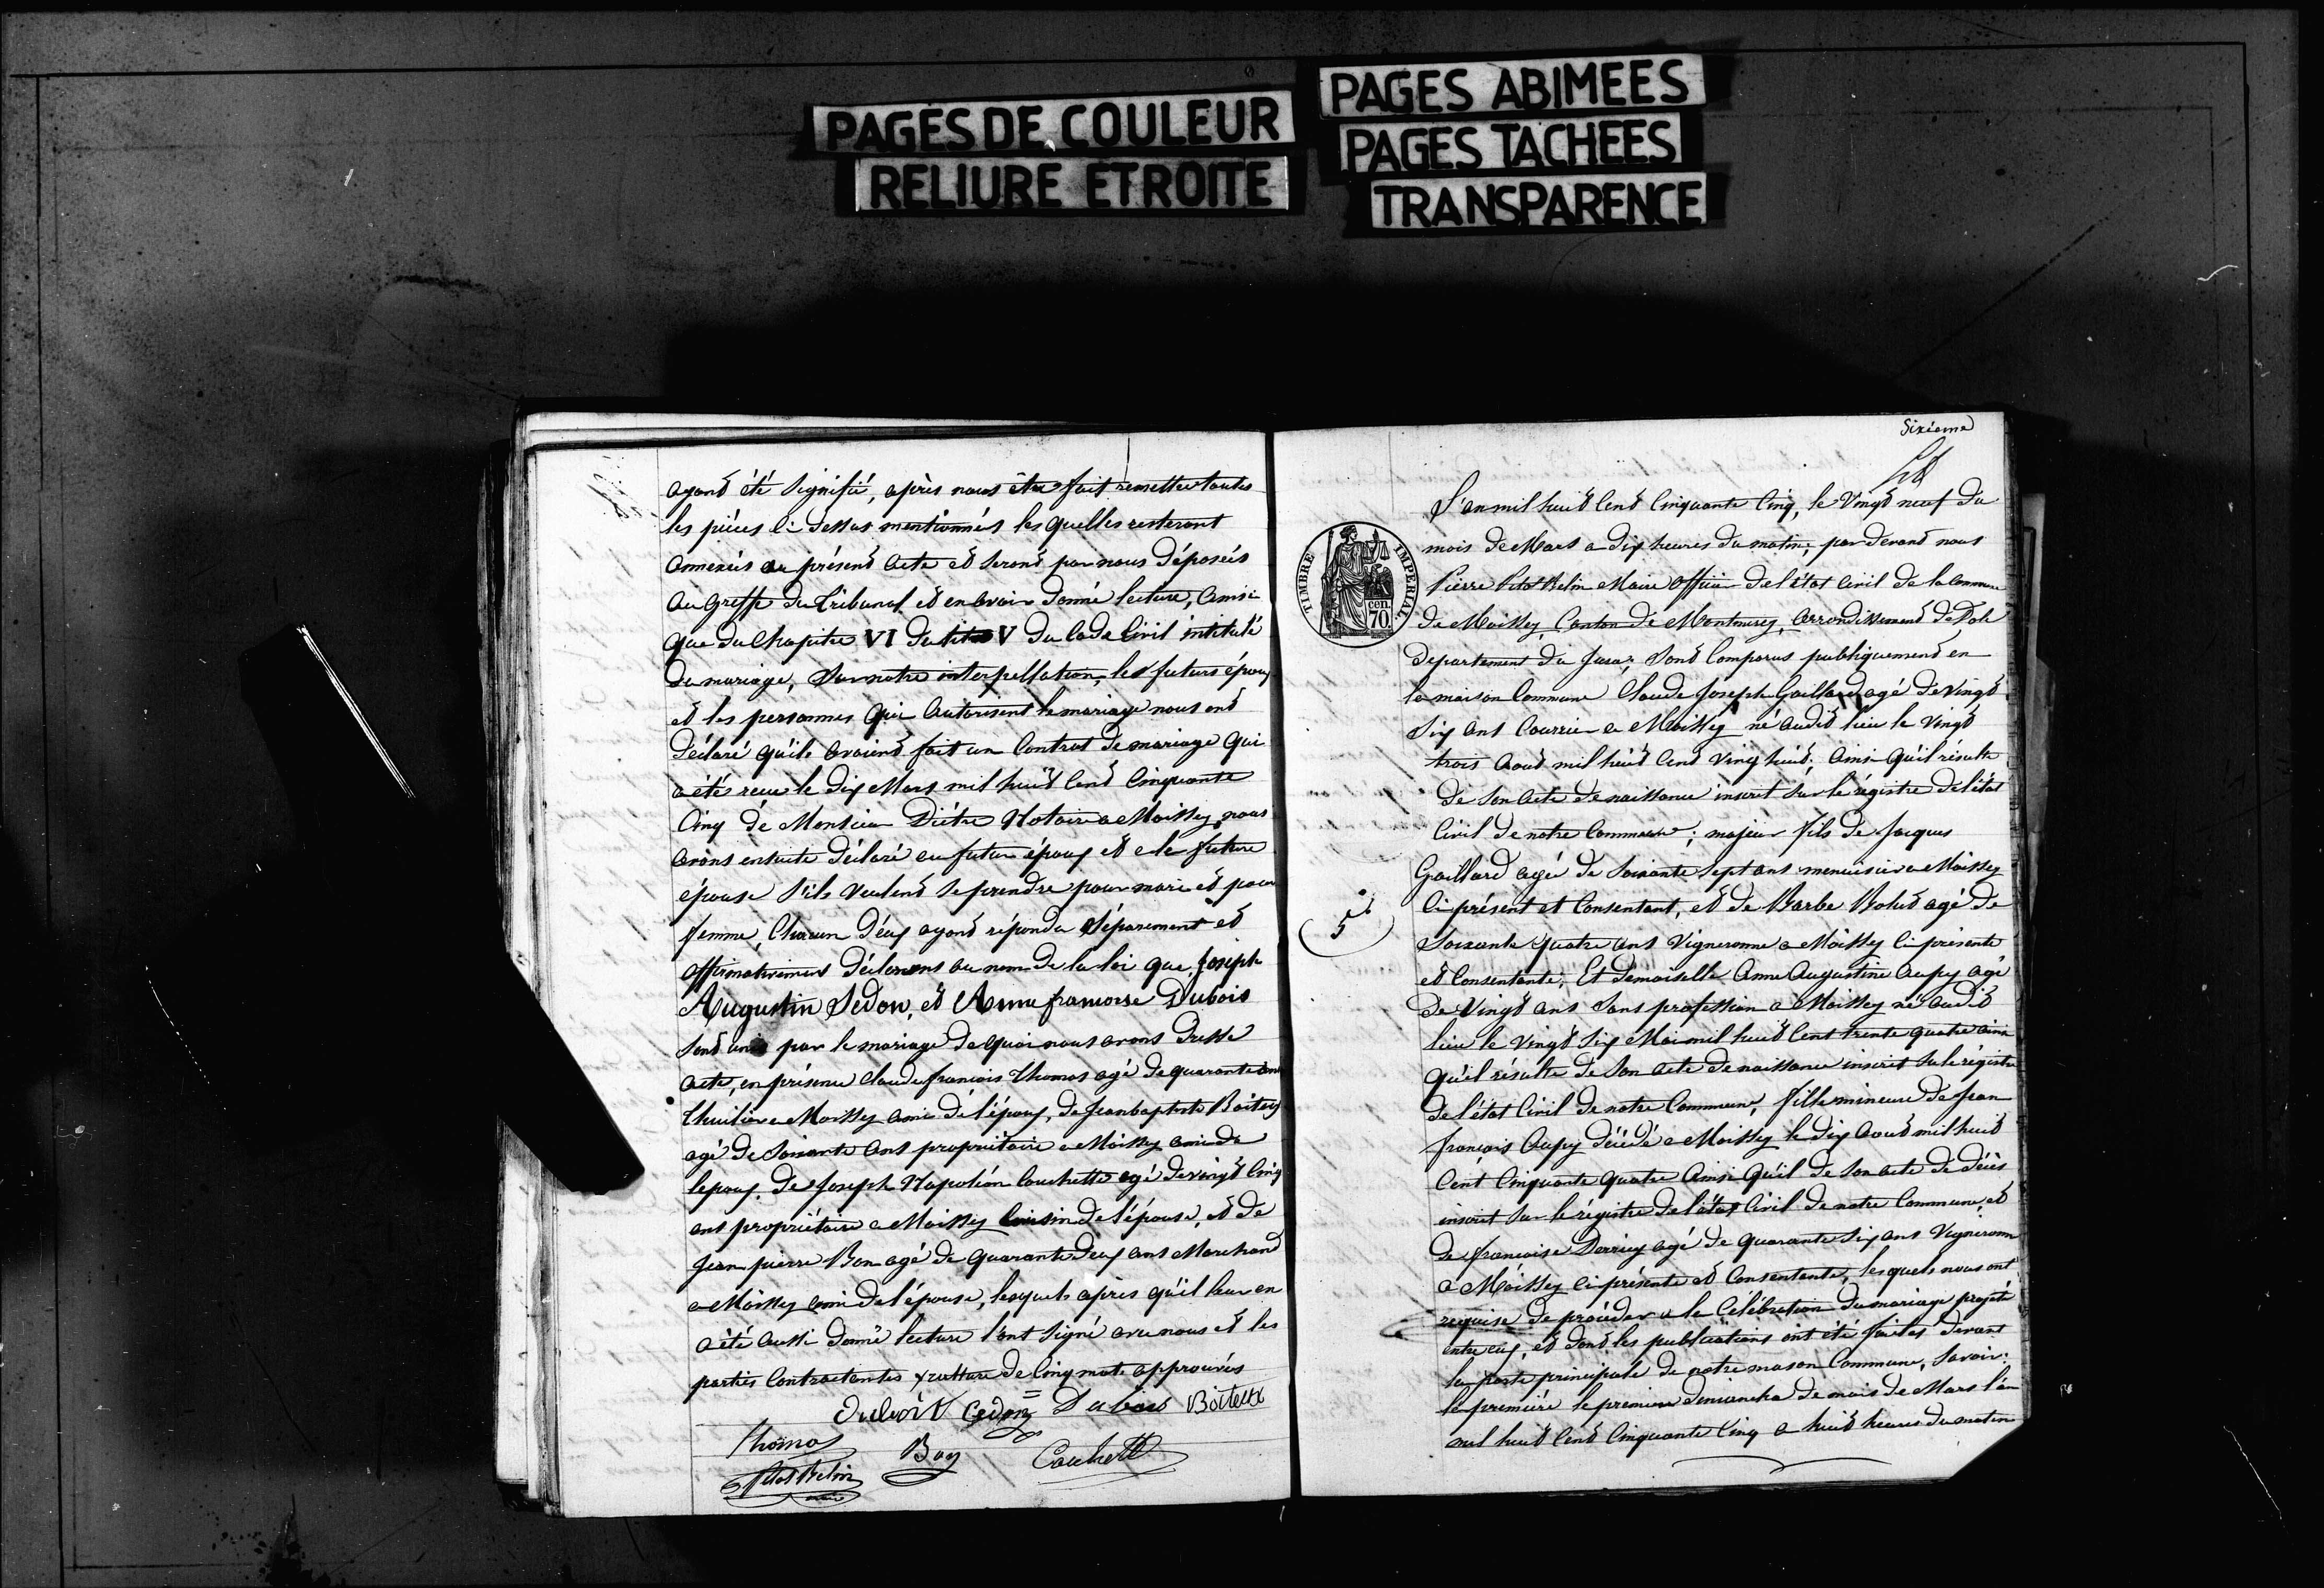 PAGES DE COULEUR
RELIURE ETROITE
PAGES ABIMEES
PAGES TACHEES
TRANSPARENCE
ayant été signifié, après nous être fait remettre toutes
les pièces ci dessus mentionnés les quelles resteront
annexés au présent acte et seront par nous déposés
au Greffe du tribunal et en avoir donné lecture, ainsi
que du Chapitre VI du titre V du Code Civil intitulé
du mariage, Sur notre interpellation, les futurs époux
et les personnes qui autorisent le mariage nous ont
déclaré qu'ils avaient fait un Contrat de mariage qui
a été reçu le dix Mars mil huit Cent Cinquante
Cinq de Monsieur Diétre Notaire a Moissey, nous
avons ensuite déclaré au futur époux et a la future
épouse s'ils veulent se prendre pour mari et pour
femme, Chacun d'eux ayant répondu séparement et
affirmativement déclarons au nom de la loi que Joseph
Augustin Sedon, et Anne francoise Dubois
sont unis par le mariage de quoi nous avons dressé
acte, en présence Claude françois Thomas agé de quarante ans
a Moissey ami de l'époux, de Jean baptiste Boiteux
agé de Soixante ans propriétaire a Moissey ami de
lepoux, de Joseph Napoléon Couchette agé de vingt Cinq
ans propriétaire a Moissey Cousin de l'épouse, et de
Jean pierre Bon agé de quarante deux ans Marchand
a Moissey ami de l'épouse, lesquels après qu'il leur en
a été aussi donné lecture l'ont signé avec nous et les
parties Contractantes rature de Cinq mots approuvés
Dubois Boiteux
Thomas
Petot Belin
Sixième
TIMBRE IMPERIAL
70 cen.
L'an mil huit Cent Cinquante Cinq, le Vingt neuf du
mois de Mars a dix heures du matin, par devant nous
Pierre Petot Belin Maire officier de l'état Civil de la Commune
de Moissey, Canton de Montmirey, arrondissement de Dole
Departement du Jura, sont Comparus publiquement en
la maison Commune Claude Joseph Gaillard agé de Vingt
Six ans a Moissey né audit lieu le Vingt
trois aout mil huit Cent Vingt huit; ainsi qu'il résulte
de son acte de naissance inscrit sur le régistre de l'état
Civil de notre Commune; majeur fils de Jacques
Gaillard agé de soixante sept ans menuisier a Moissey
Ci présent et Consentant, et de Barbe agé de
5
Soixante quatre ans Vigneronne a Moissey Ci présente
et Consentante; Et Demoiselle Anne Augustine Aupy agé
de Vingt ans Sans profession a Moissey né audit
lieu le Vingt Six Mai mil huit Cent trente quatre ainsi
qu'il résulte de son acte de naissance inscrit sur le régistre
de l'état Civil de notre Commune, fille mineure de Jean
françois Aupy décédé a Moissey le dix aout mil huit
Cent Cinquante quatre Ainsi qu'il de son acte de décès
inscrit sur le régistre de l'état Civil de notre Commune, et
de françoise Derriey agé de quarante Six ans Vigneronne
a Moissey Ci présente et Consentante, lesquels nous ont
requise de procéder a la Célébration du mariage projeté
entre eux, et dont les publications ont été faites devant
la porte principale de notre maison Commune, Savoir:
la première le premier dimanche de mois de Mars l'an
mil huit Cent Cinquante Cinq a huit heures du matin